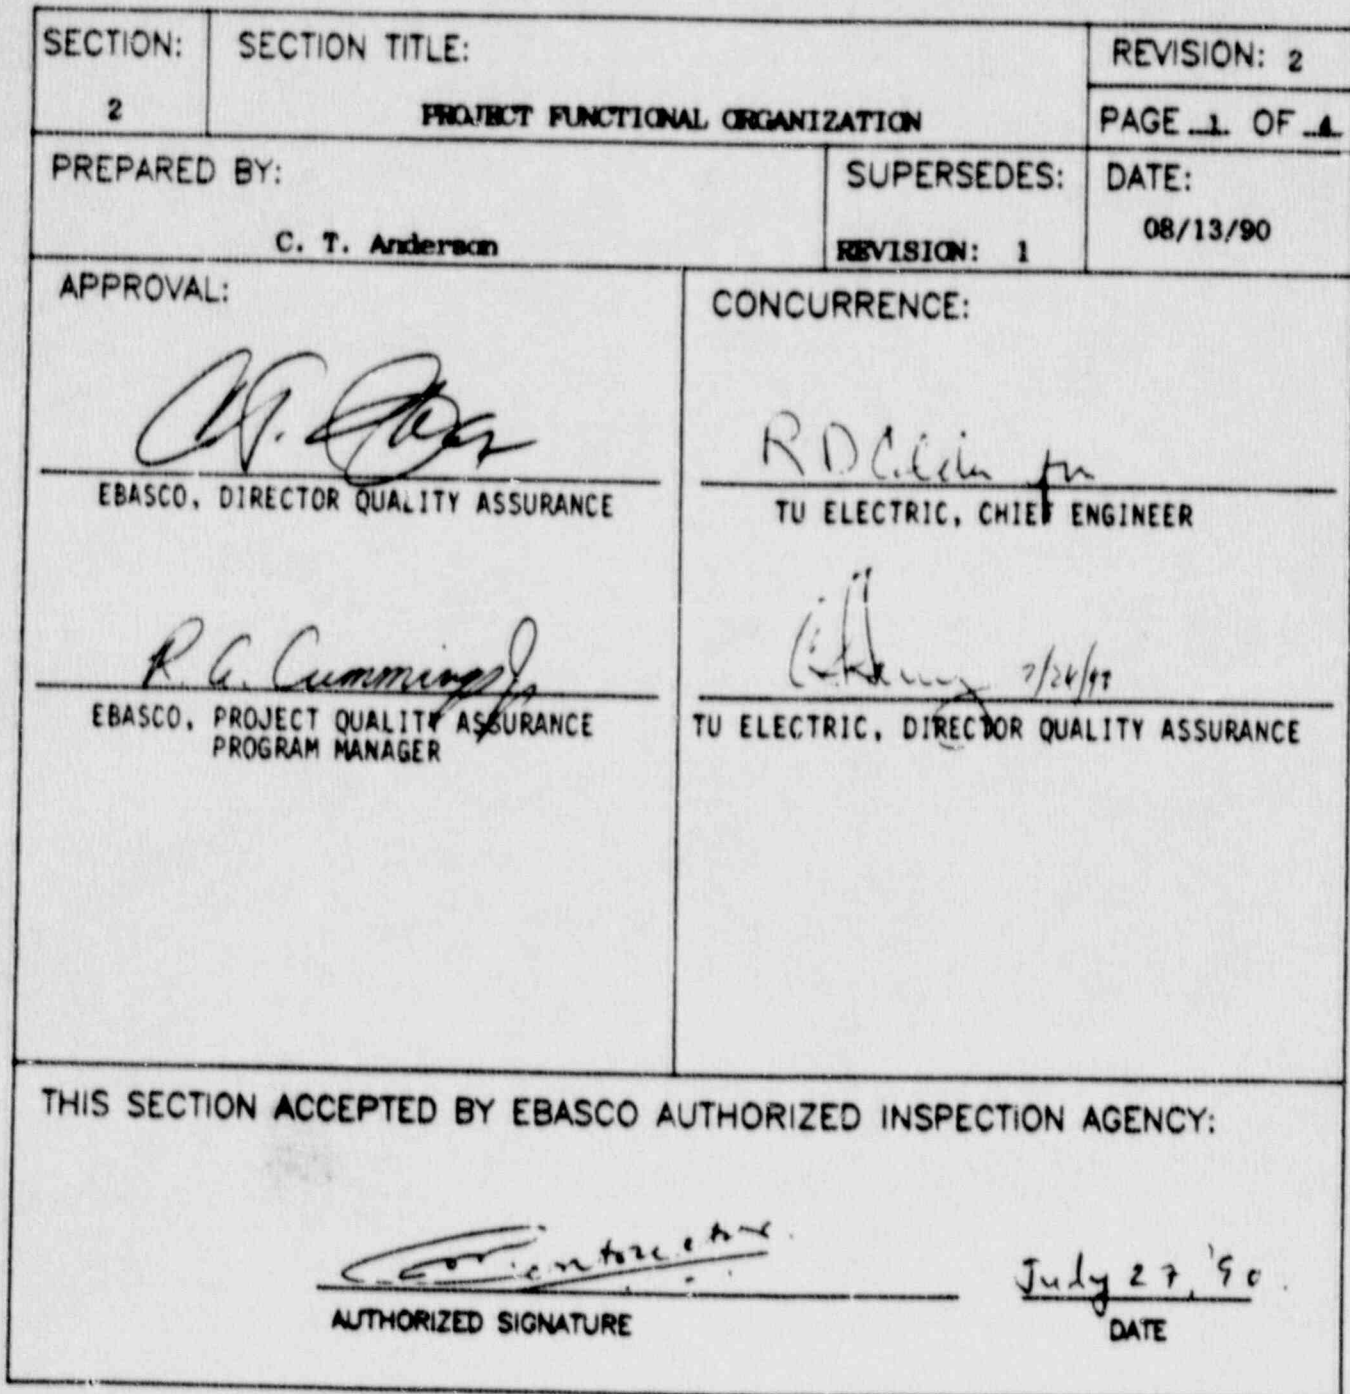 SECTION:
2
SECTION TITLE:
PROJECT FUNCTIONAL ORGANIZATION
REVISION: 2
PAGE 1 OF
PREPARED BY:
C. T. Anderson
SUPERSEDES:
REVISION: 1
DATE:
08/13/90
APPROVAL:
EBASCO, DIRECTOR QUALITY ASSURANCE
R. A. Cummings Jr
EBASCO, PROJECT QUALITY ASSURANCE
PROGRAM MANAGER
CONCURRENCE:
R D for
TU ELECTRIC, CHIEF ENGINEER
TU ELECTRIC, DIRECTOR QUALITY ASSURANCE
THIS SECTION ACCEPTED BY EBASCO AUTHORIZED INSPECTION AGENCY:
AUTHORIZED SIGNATURE
July 27, '90
DATE